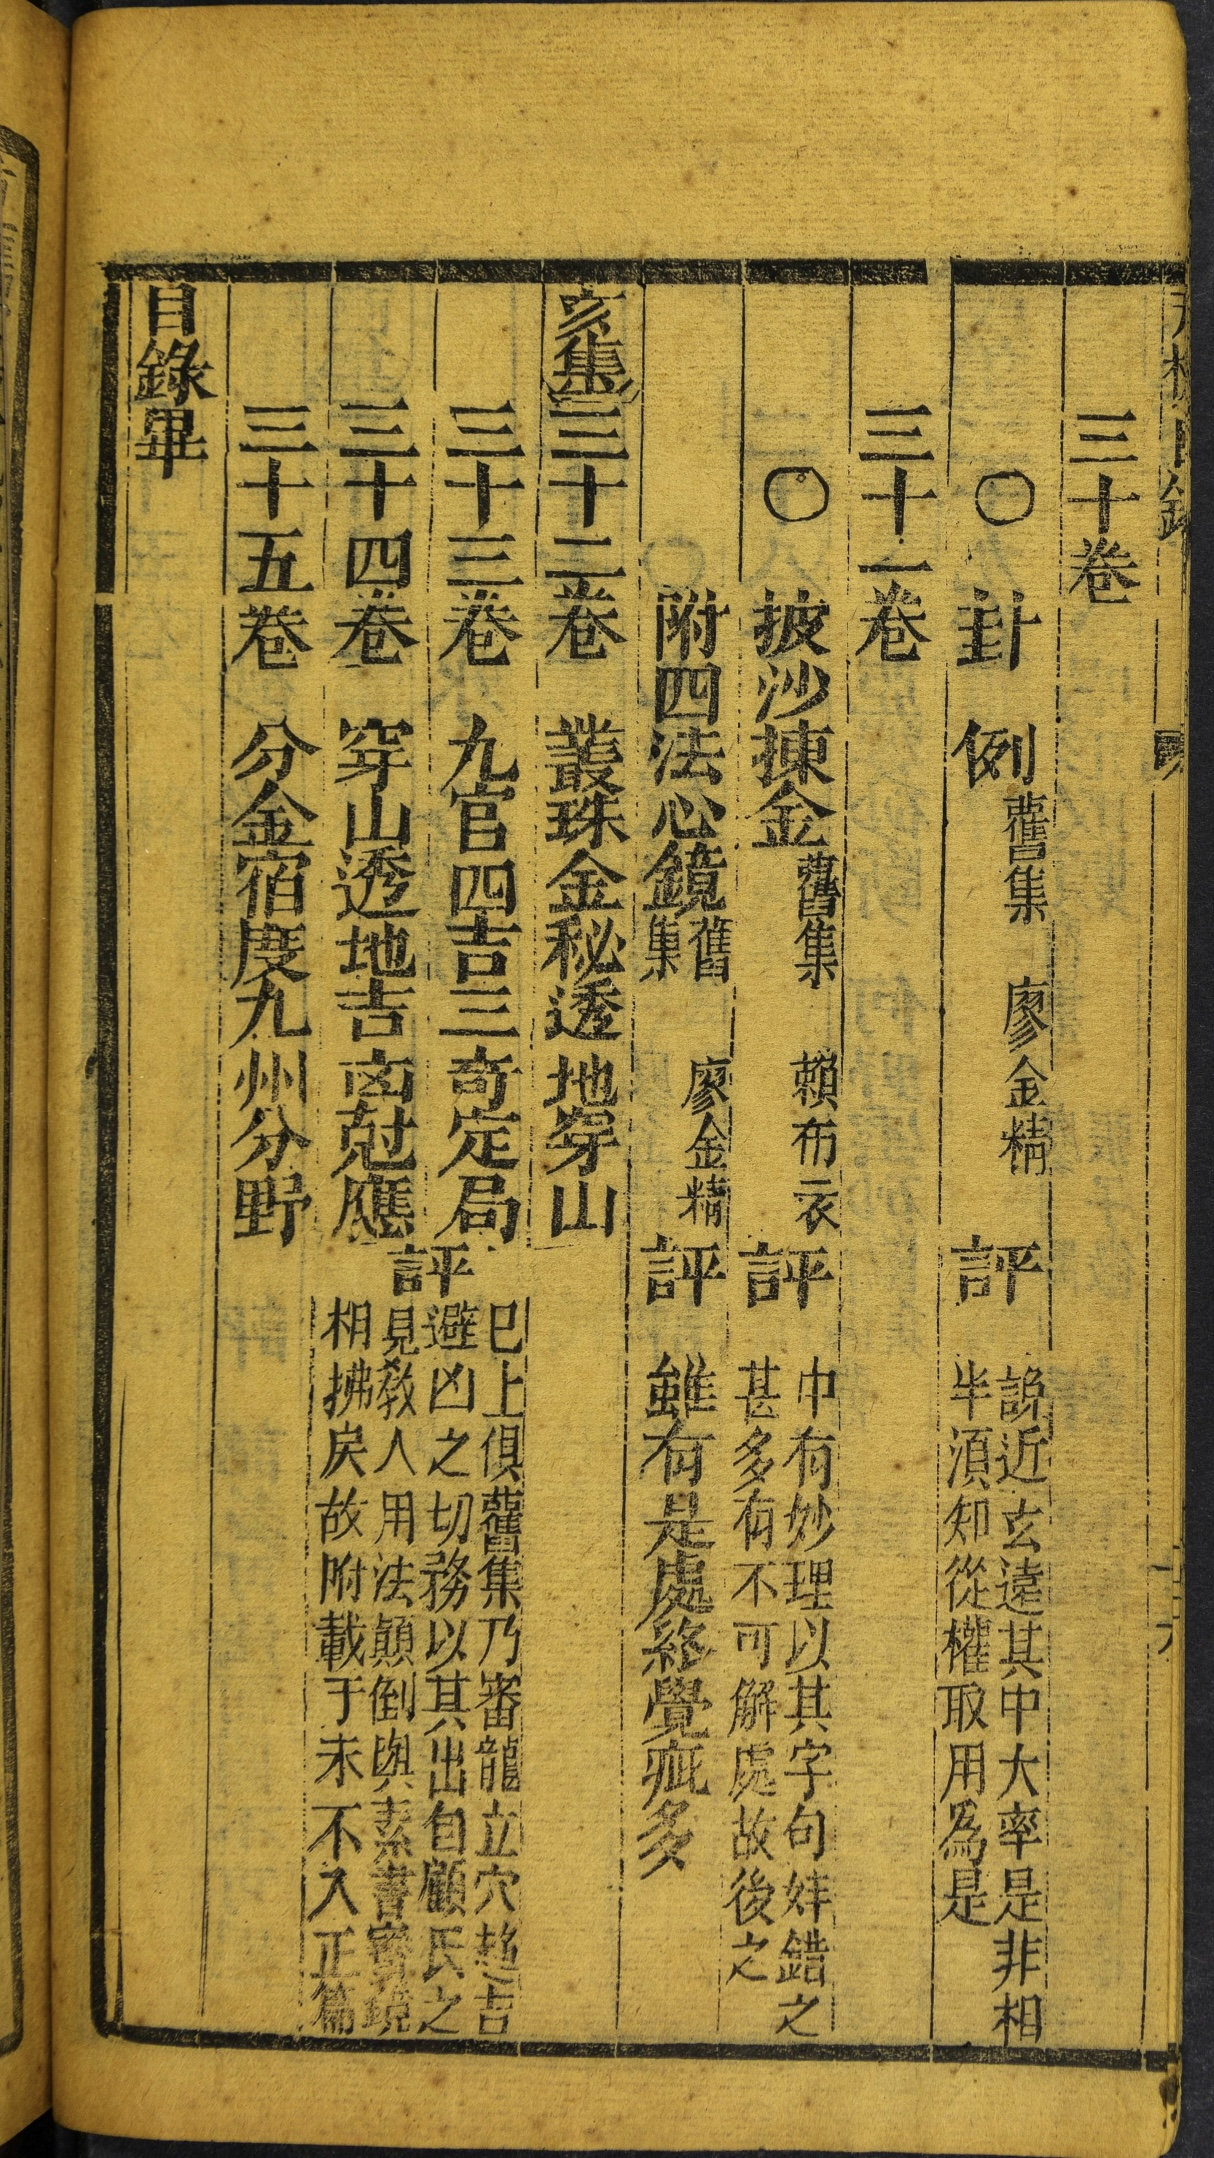 三十卷
○卦例 舊集 廖金精 評 說近玄遠其中大率是非相
半須知從權取用為是
三十一卷
○披沙揀金 舊集 賴布衣 評 中有妙理以其字句舛錯之
甚多有不可解處故後之
附四法心鏡 舊集 廖金精 評 雖有是處終覺疵多
亥集 三十二卷 叢珠金秘透地穿山
三十三卷 九官四吉三奇定局
三十四卷 穿山透地吉凶尅應
評 已上俱舊集乃審龍立穴趋吉
避凶之切務以其出自顧氏之
見教人用法顛倒與素書寳鏡
相拂戾故附載于未不入正篇
三十五卷 分金宿度九州分野
目錄畢